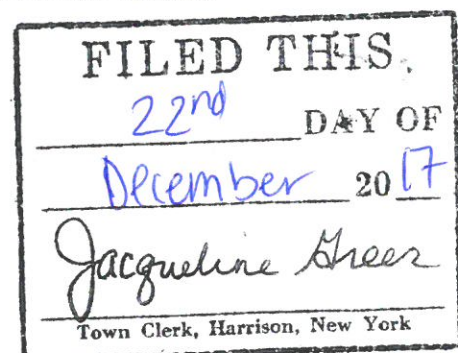 FILED THIS
22nd DAY OF
December 2017
Jacqueline Greer
Town Clerk, Harrison, New York